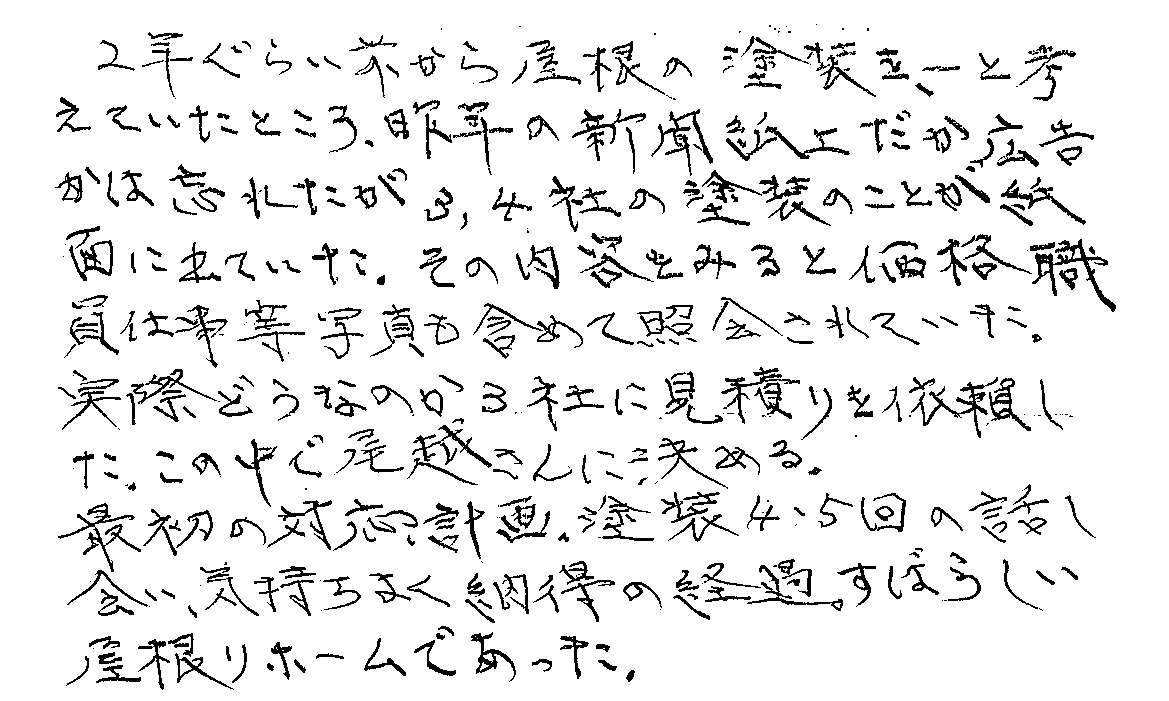 2年ぐらい前から屋根の塗装を、―と考
えていたところ、昨年の新聞紙上だか広告
かは忘れたが3,4社の塗装のことが紙
面に出ていた。その内容をみると価格職
員仕事等写真も含めて照会されていた。
実際どうなのか3社に見積りを依頼し
た。この中で尾越さんに決める。
最初の対応計画、塗装4、5回の話し
合い、気持ちよく納得の経過。すばらしい
屋根リホームであった。